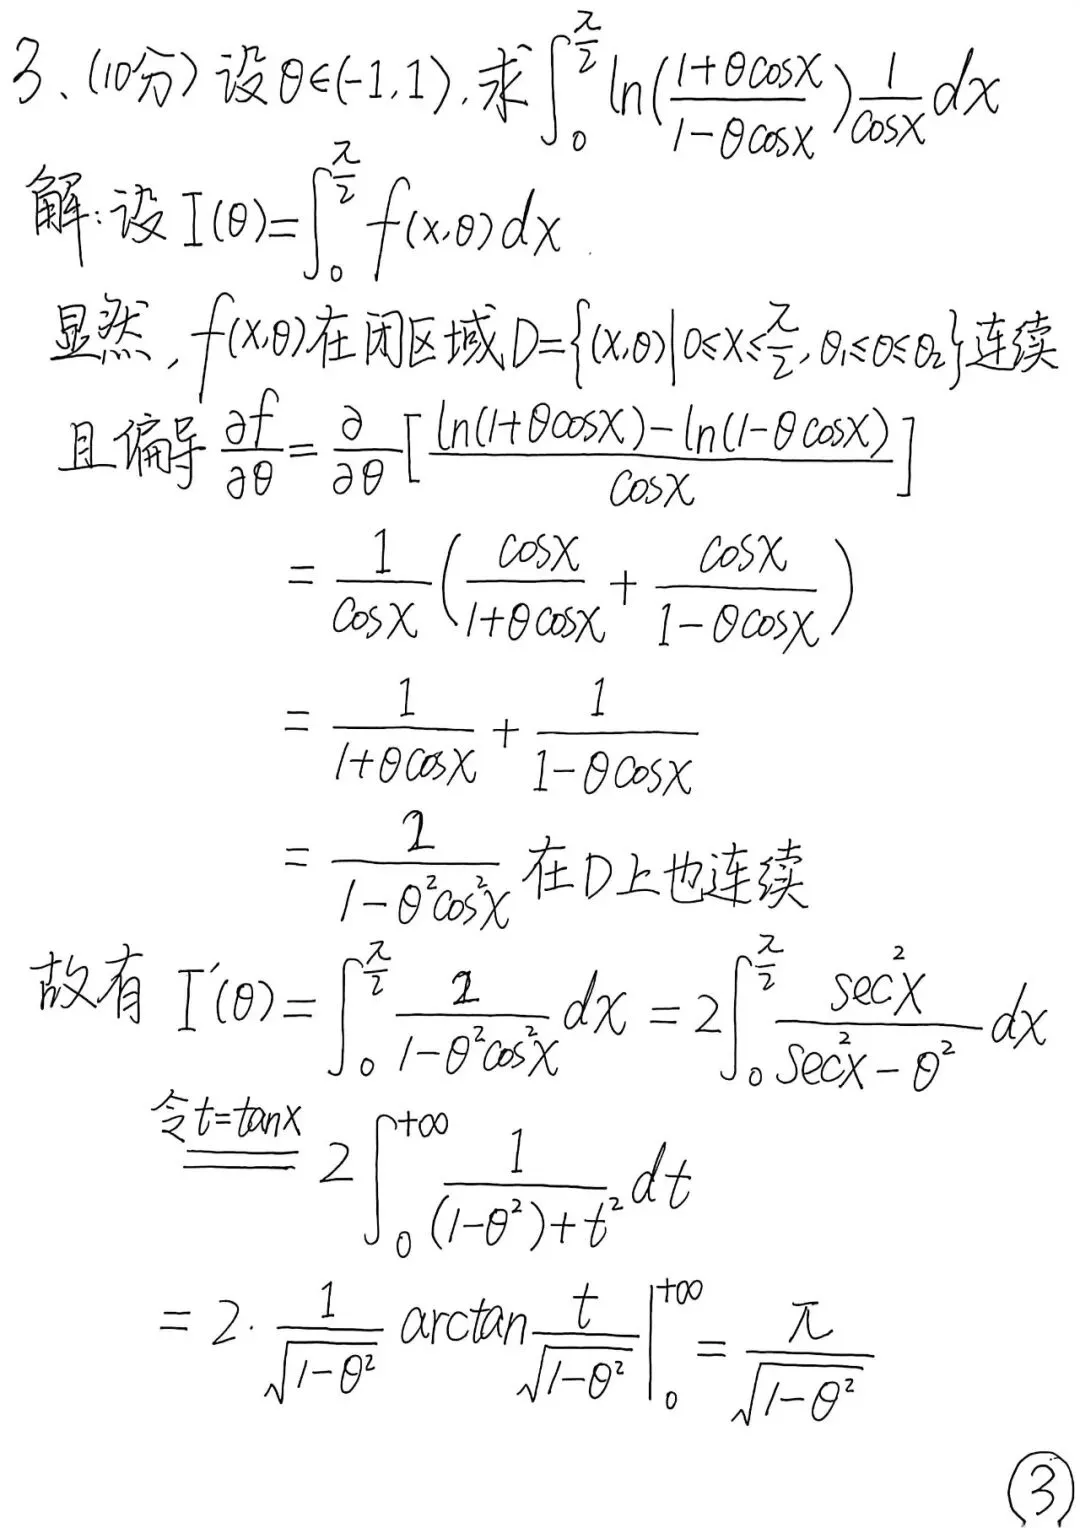 3、(10分) 设θ∈(-1,1),求∫₀^{π/2} ln((1+θcosx)/(1-θcosx)) 1/cosx dx
解:设 I(θ)=∫₀^{π/2} f(x,θ)dx
显然,f(x,θ)在闭区域D={(x,θ)|0≤x≤π/2,θ₁≤θ≤θ₂}连续
且偏导 ∂f/∂θ = ∂/∂θ [(ln(1+θcosx)-ln(1-θcosx))/cosx]
= 1/cosx (cosx/(1+θcosx) + cosx/(1-θcosx))
= 1/(1+θcosx) + 1/(1-θcosx)
= 2/(1-θ²cos²x) 在D上也连续
故有 I′(θ)=∫₀^{π/2} 2/(1-θ²cos²x) dx = 2∫₀^{π/2} sec²x/(sec²x-θ²) dx
令t=tanx
= 2∫₀^{+∞} 1/((1-θ²)+t²) dt
= 2· 1/√(1-θ²) arctan t/√(1-θ²) |₀^{+∞} = π/√(1-θ²)
③